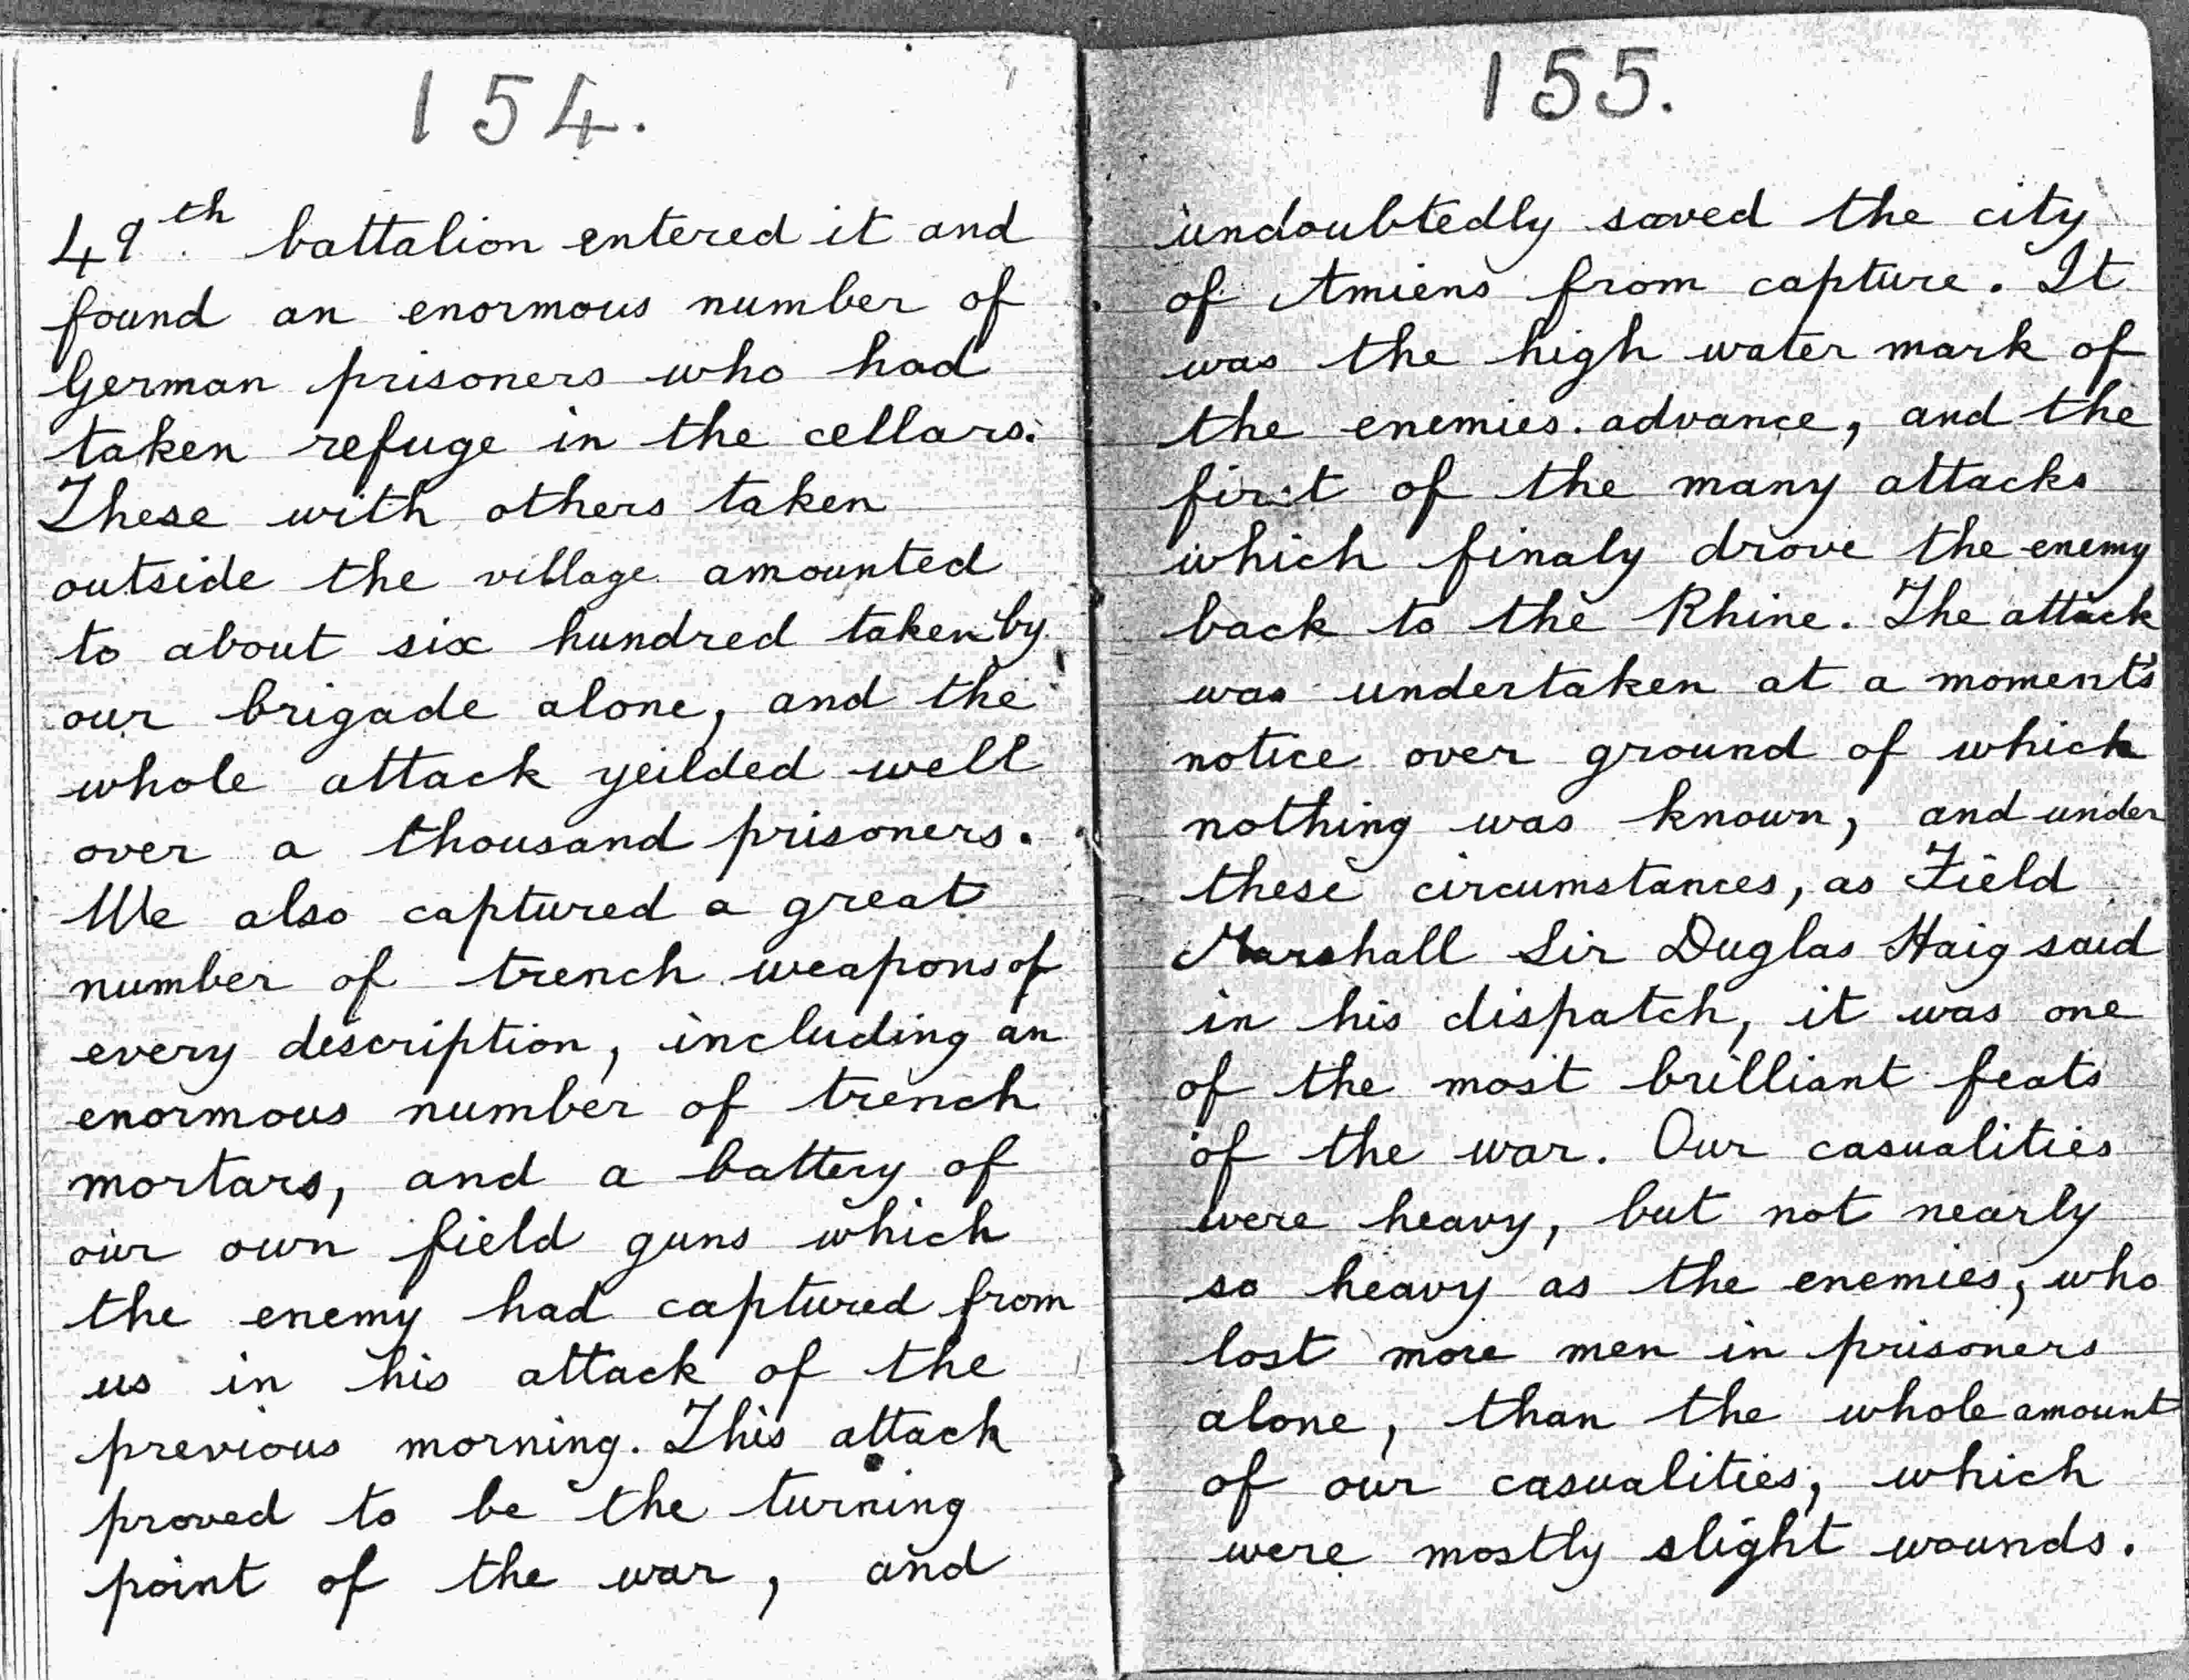 154.
49th battalion entered it and
found an enormous number of
German prisoners who had
taken refuge in the cellars.
These with others taken
outside the village amounted
to about six hundred taken by
our brigade alone, and the
whole attack yeilded well
over a thousand prisoners.
We also captured a great
number of trench weapons of
every description, including an
enormous number of trench
mortars, and a battery of
our own field guns which
the enemy had captured from
us in his attack of the
previous morning. This attack
proved to be the turning
point of the war, and
155.
undoubtedly saved the city
of Amiens from capture. It
was the high water mark of
the enemies advance, and the
first of the many attacks
which finaly drove the enemy
back to the Rhine. The attack
was undertaken at a moment's
notice over ground of which
nothing was known, and under
these circumstances, as Field
Marshall Sir Duglas Haig said
in his dispatch, it was one
of the most brilliant feats
of the war. Our casualities
were heavy, but not nearly
so heavy as the enemies, who
lost more men in prisoners
alone, than the whole amount
of our casualities, which
were mostly slight wounds.